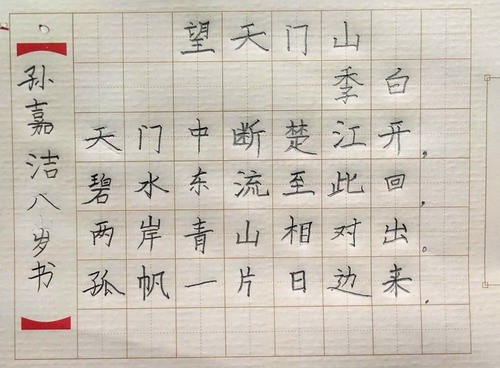 望天门山
季白
天门中断楚江开，
碧水东流至此回，
两岸青山相对出。
孤帆一片日边来.
孙嘉洁八岁书